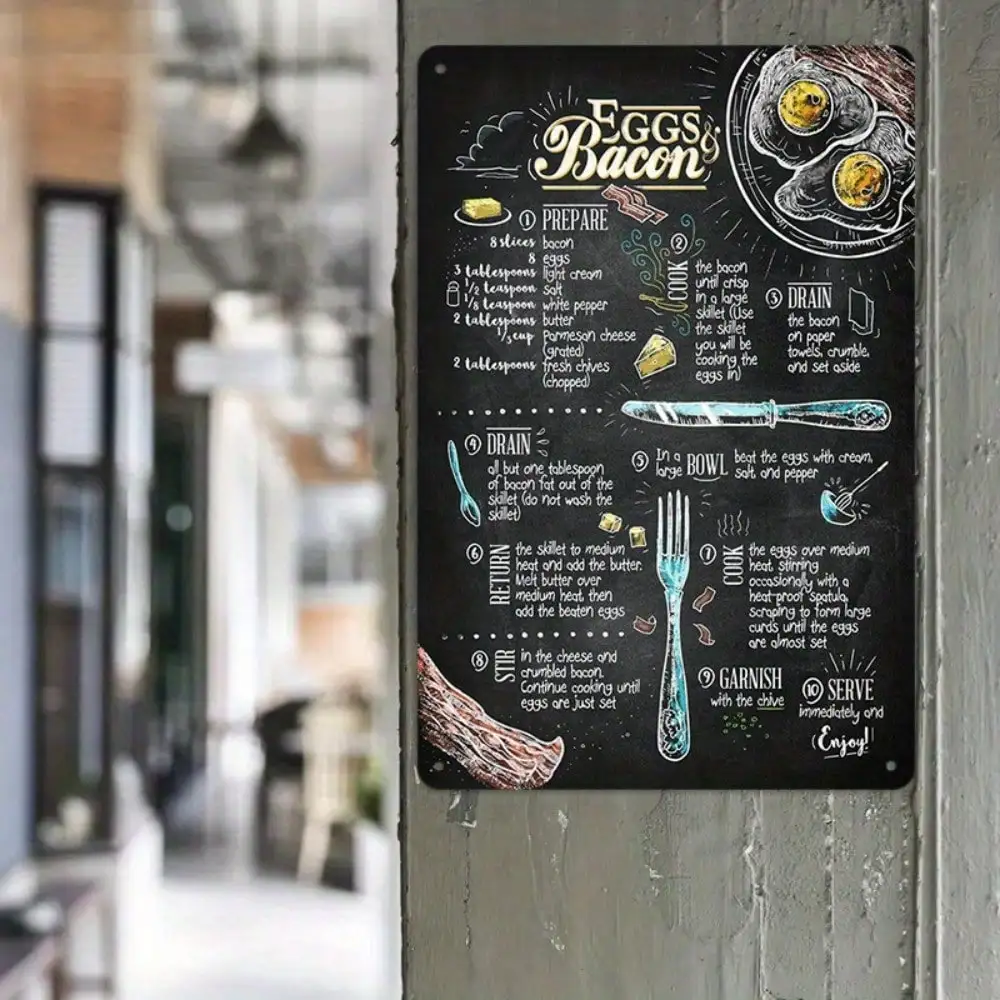 EGGS &
Bacon
1 PREPARE
8 slices bacon
8 eggs
3 tablespoons light cream
1/2 teaspoon salt
1/8 teaspoon white pepper
2 tablespoons butter
1/3 cup Parmesan cheese
(grated)
2 tablespoons fresh chives
(chopped)
2 COOK
the bacon
until crisp
in a large
skillet (Use
the skillet
you will be
cooking the
eggs in)
3 DRAIN
the bacon
on paper
towels, crumble,
and set aside
4 DRAIN
all but one tablespoon
of bacon fat out of the
skillet (do not wash the
skillet)
5 In a large BOWL beat the eggs with cream,
salt and pepper
6 RETURN
the skillet to medium
heat and add the butter.
Melt butter over
medium heat, then
add the beaten eggs
7 COOK
the eggs over medium
heat, stirring
occasionally with a
heat-proof spatula,
scraping to form large
curds until the eggs
are almost set
8 STIR
in the cheese and
crumbled bacon.
Continue cooking until
eggs are just set
9 GARNISH
with the chive
10 SERVE
immediately and
Enjoy!